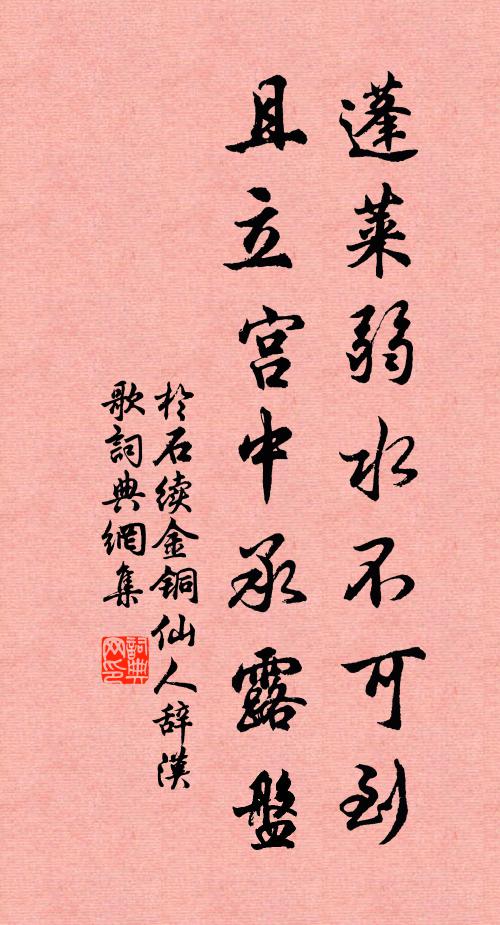 蓬萊弱水不可到
且立宫中承露盤
於石续金銅仙人辞漢
歌詞典網集
詞典
网印